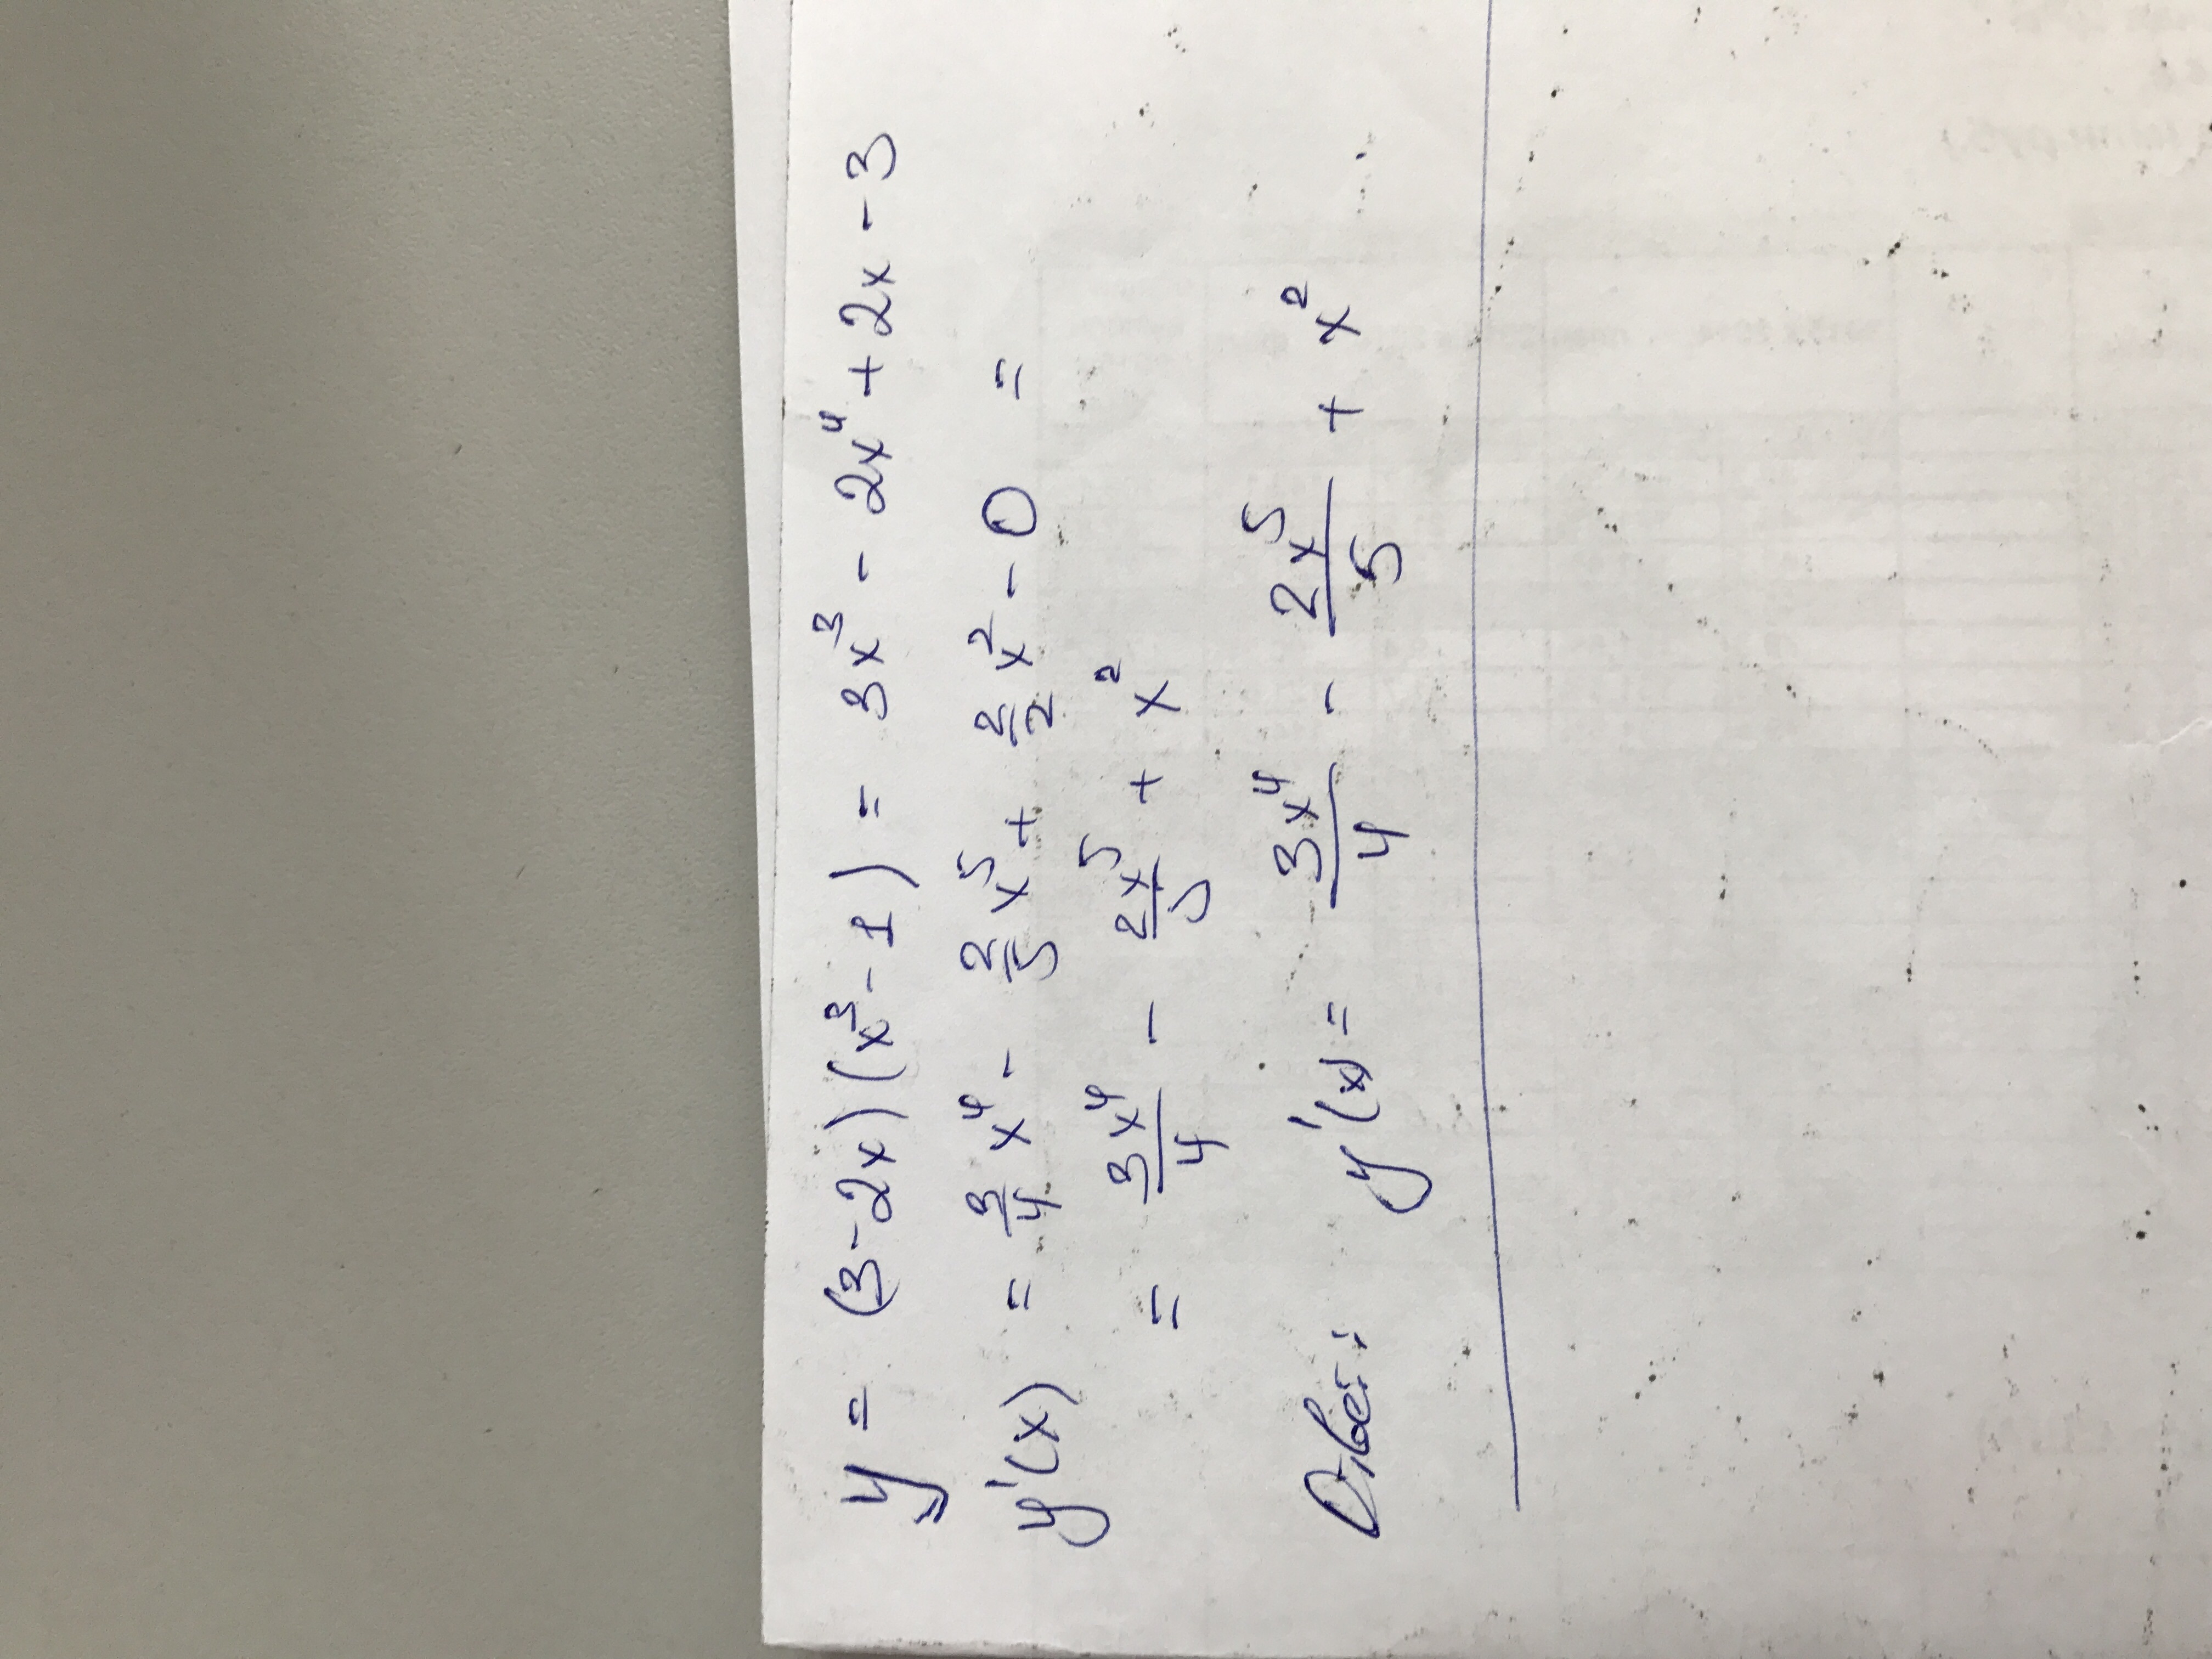 y = (3-2x)(x³-1) = 3x³ - 2x⁴ + 2x - 3
y'(x) = 3/4 x⁴ - 2/5 x⁵ + 2/2 x² - 0 =
= 3x⁴/4 - 2x⁵/5 + x²
Ответ: y'(x) = 3x⁴/4 - 2x⁵/5 + x²